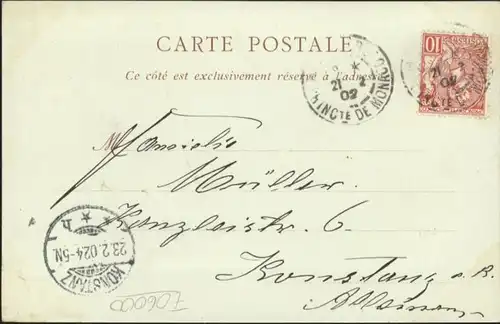 CARTE POSTALE
Ce côté est exclusivement réservé à l'adresse
21
02
PINCTE DE MONACO
10
21
02
M
Familie
Müller
Kanzleistr. 6
Konstanz a. B.
KONSTANZ
23.2.02 4-5N.
706000